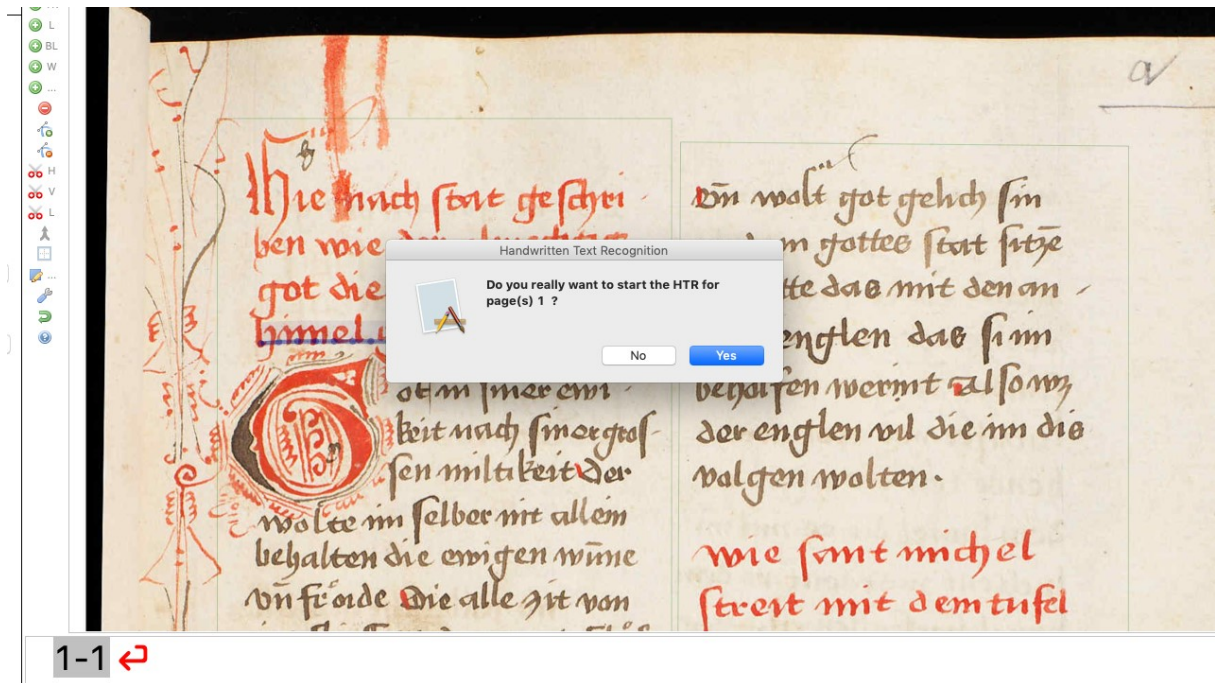 L
BL
W
...
H
V
L
...
a
Hie nach stat geschri
ben wie
got die
himel
ot in siner ewi
keit nach siner gros
sen miltikeit Der
wolte im selber nit allein
behalten die ewigen wūne
vn̄ froͤide Die alle zit von
ein wolt got gelich sin
m gottes stat sitze
tte das mit den an
englen das si im
beholfen werint also wz
der englen vil die im dis
volgen wolten.
wie sant michel
streit mit dem tufel
Handwritten Text Recognition
Do you really want to start the HTR for
page(s) 1 ?
No Yes
1-1